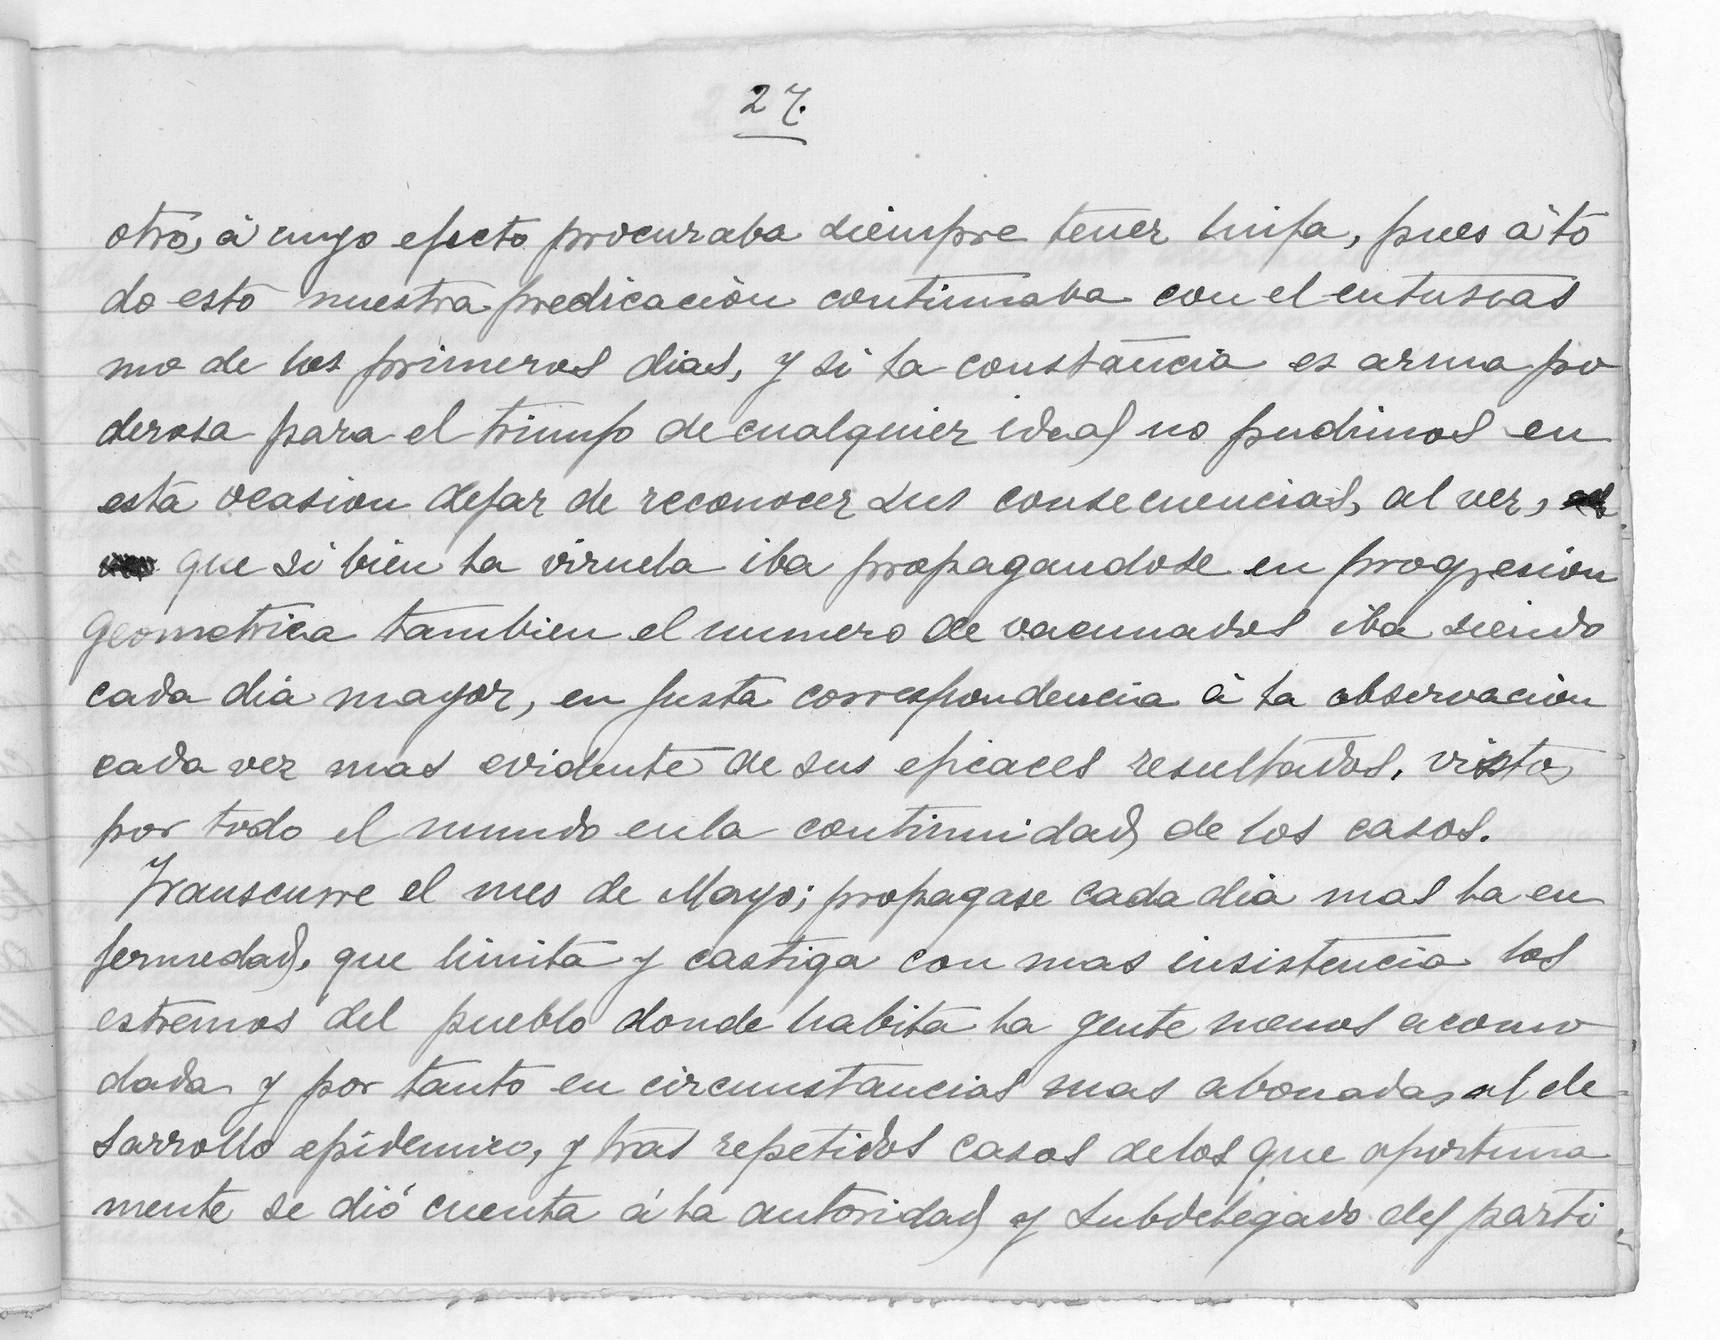 27.
otro, á cuyo efecto procuraba siempre tener linfa, pues á to
do esto nuestra predicación continuaba con el entusias
mo de los primeros dias, y si la constancia es arma po
derosa para el triunfo de cualquier ideal no pudimos en
esta ocasion dejar de reconocer sus consecuencias, al ver,
que si bien la viruela iba propagandose en progresion
geometrica tambien el numero de vacunados iba siendo
cada dia mayor, en justa correspondencia á la observacion
cada vez mas evidente de sus eficaces resultados, vistos
por todo el mundo en la continuidad de los casos.
Transcurre el mes de Mayo; propagase cada dia mas la en
fermedad, que limita y castiga con mas insistencia los
estremos del pueblo donde habita la gente menos acomo
dada y por tanto en circunstancias mas abonadas al de
sarrollo epidemico, y tras repetidos casos de los que oportuna
mente se dió cuenta á la autoridad y Subdelegado del parti